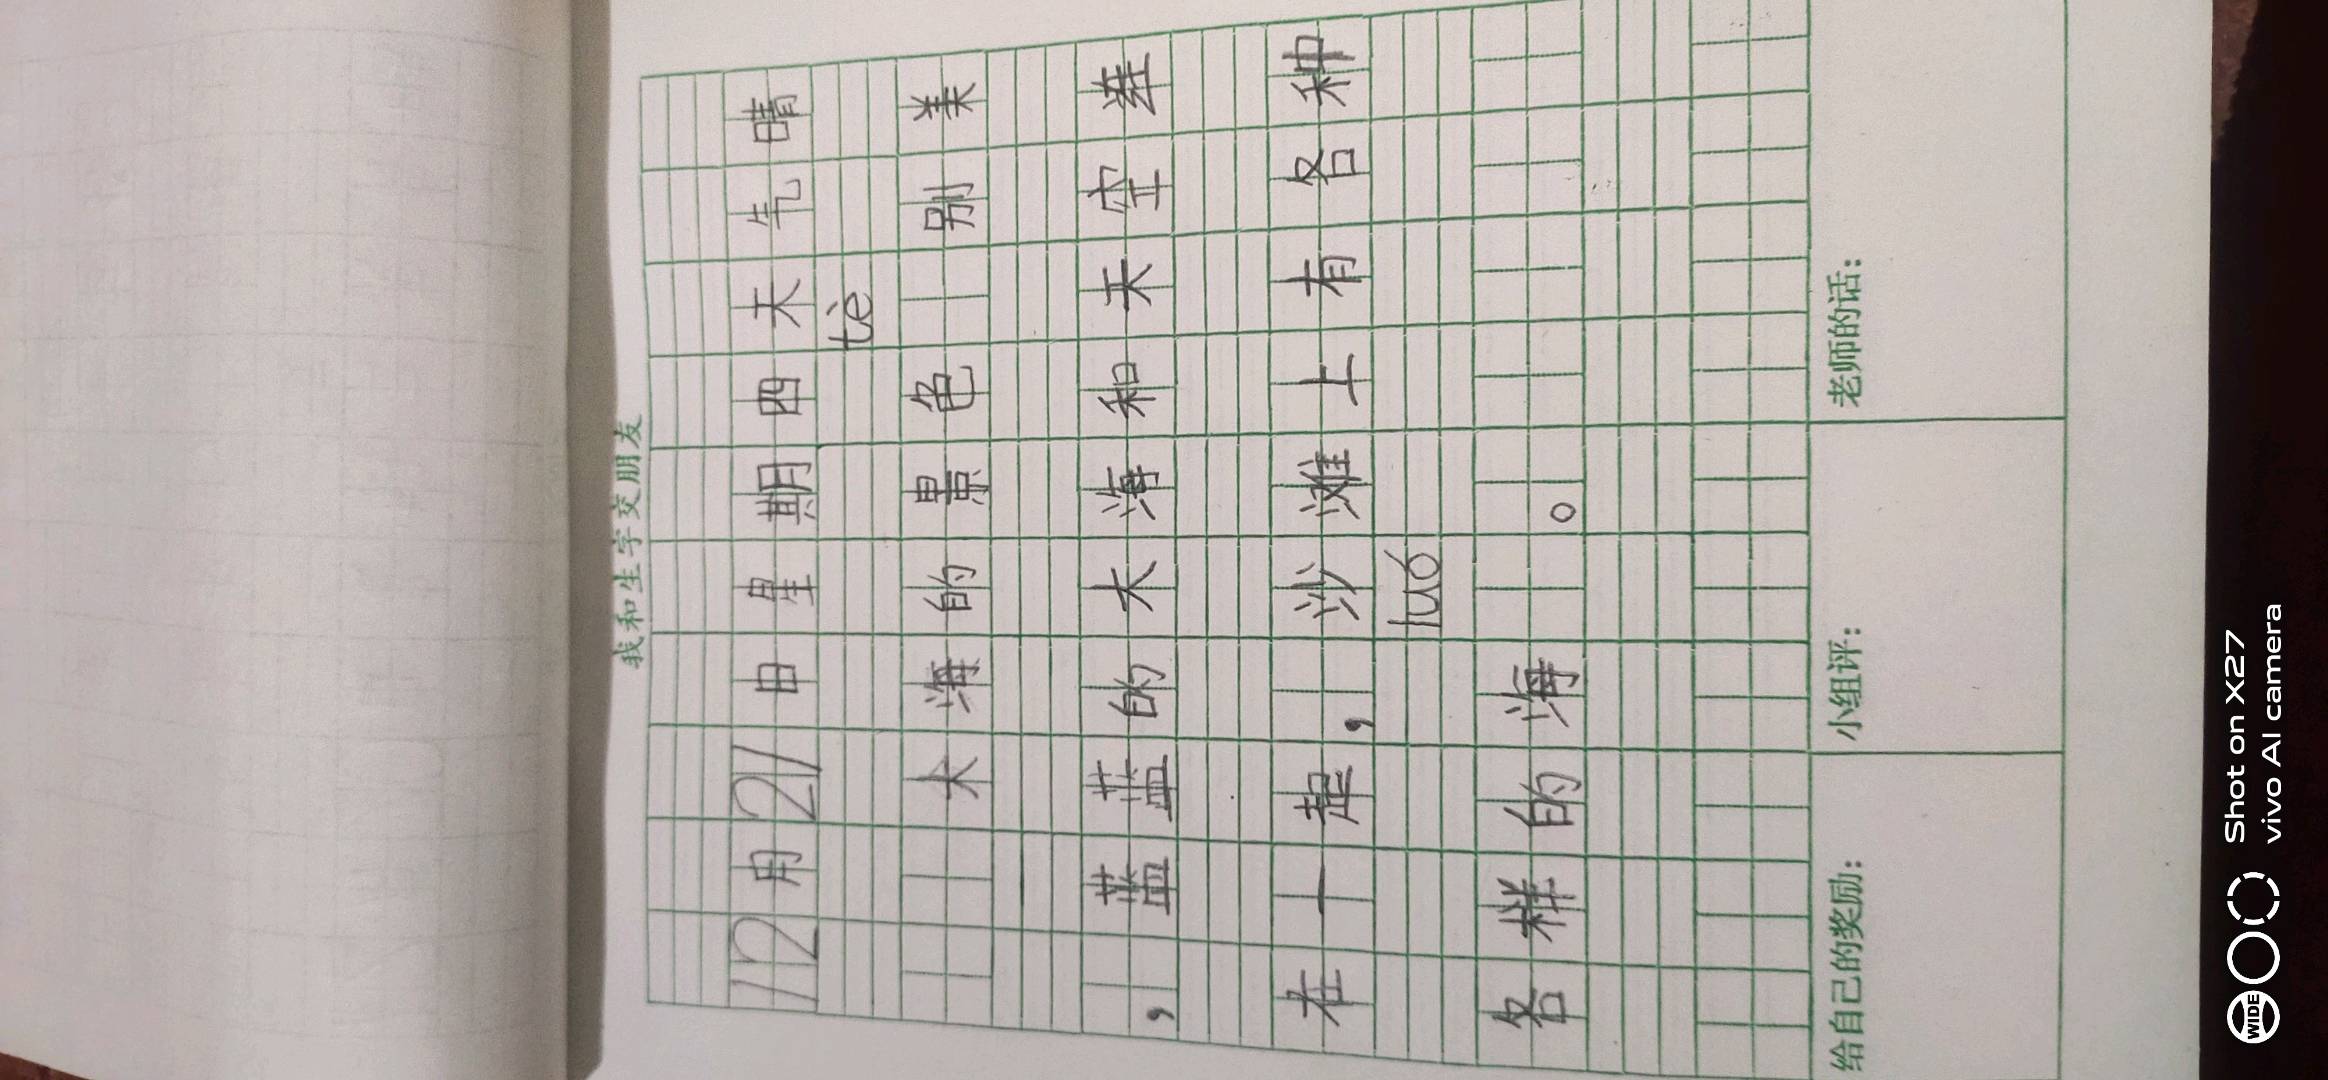 我和生字交朋友
12月21日星期四天气晴
tè
大海的景色 别美
，蓝蓝的大海和天空连
在一起，沙滩上有各种
luó
各样的海 。
给自己的奖励： 小组评： 老师的话：
WIDE
Shot on X27
vivo AI camera